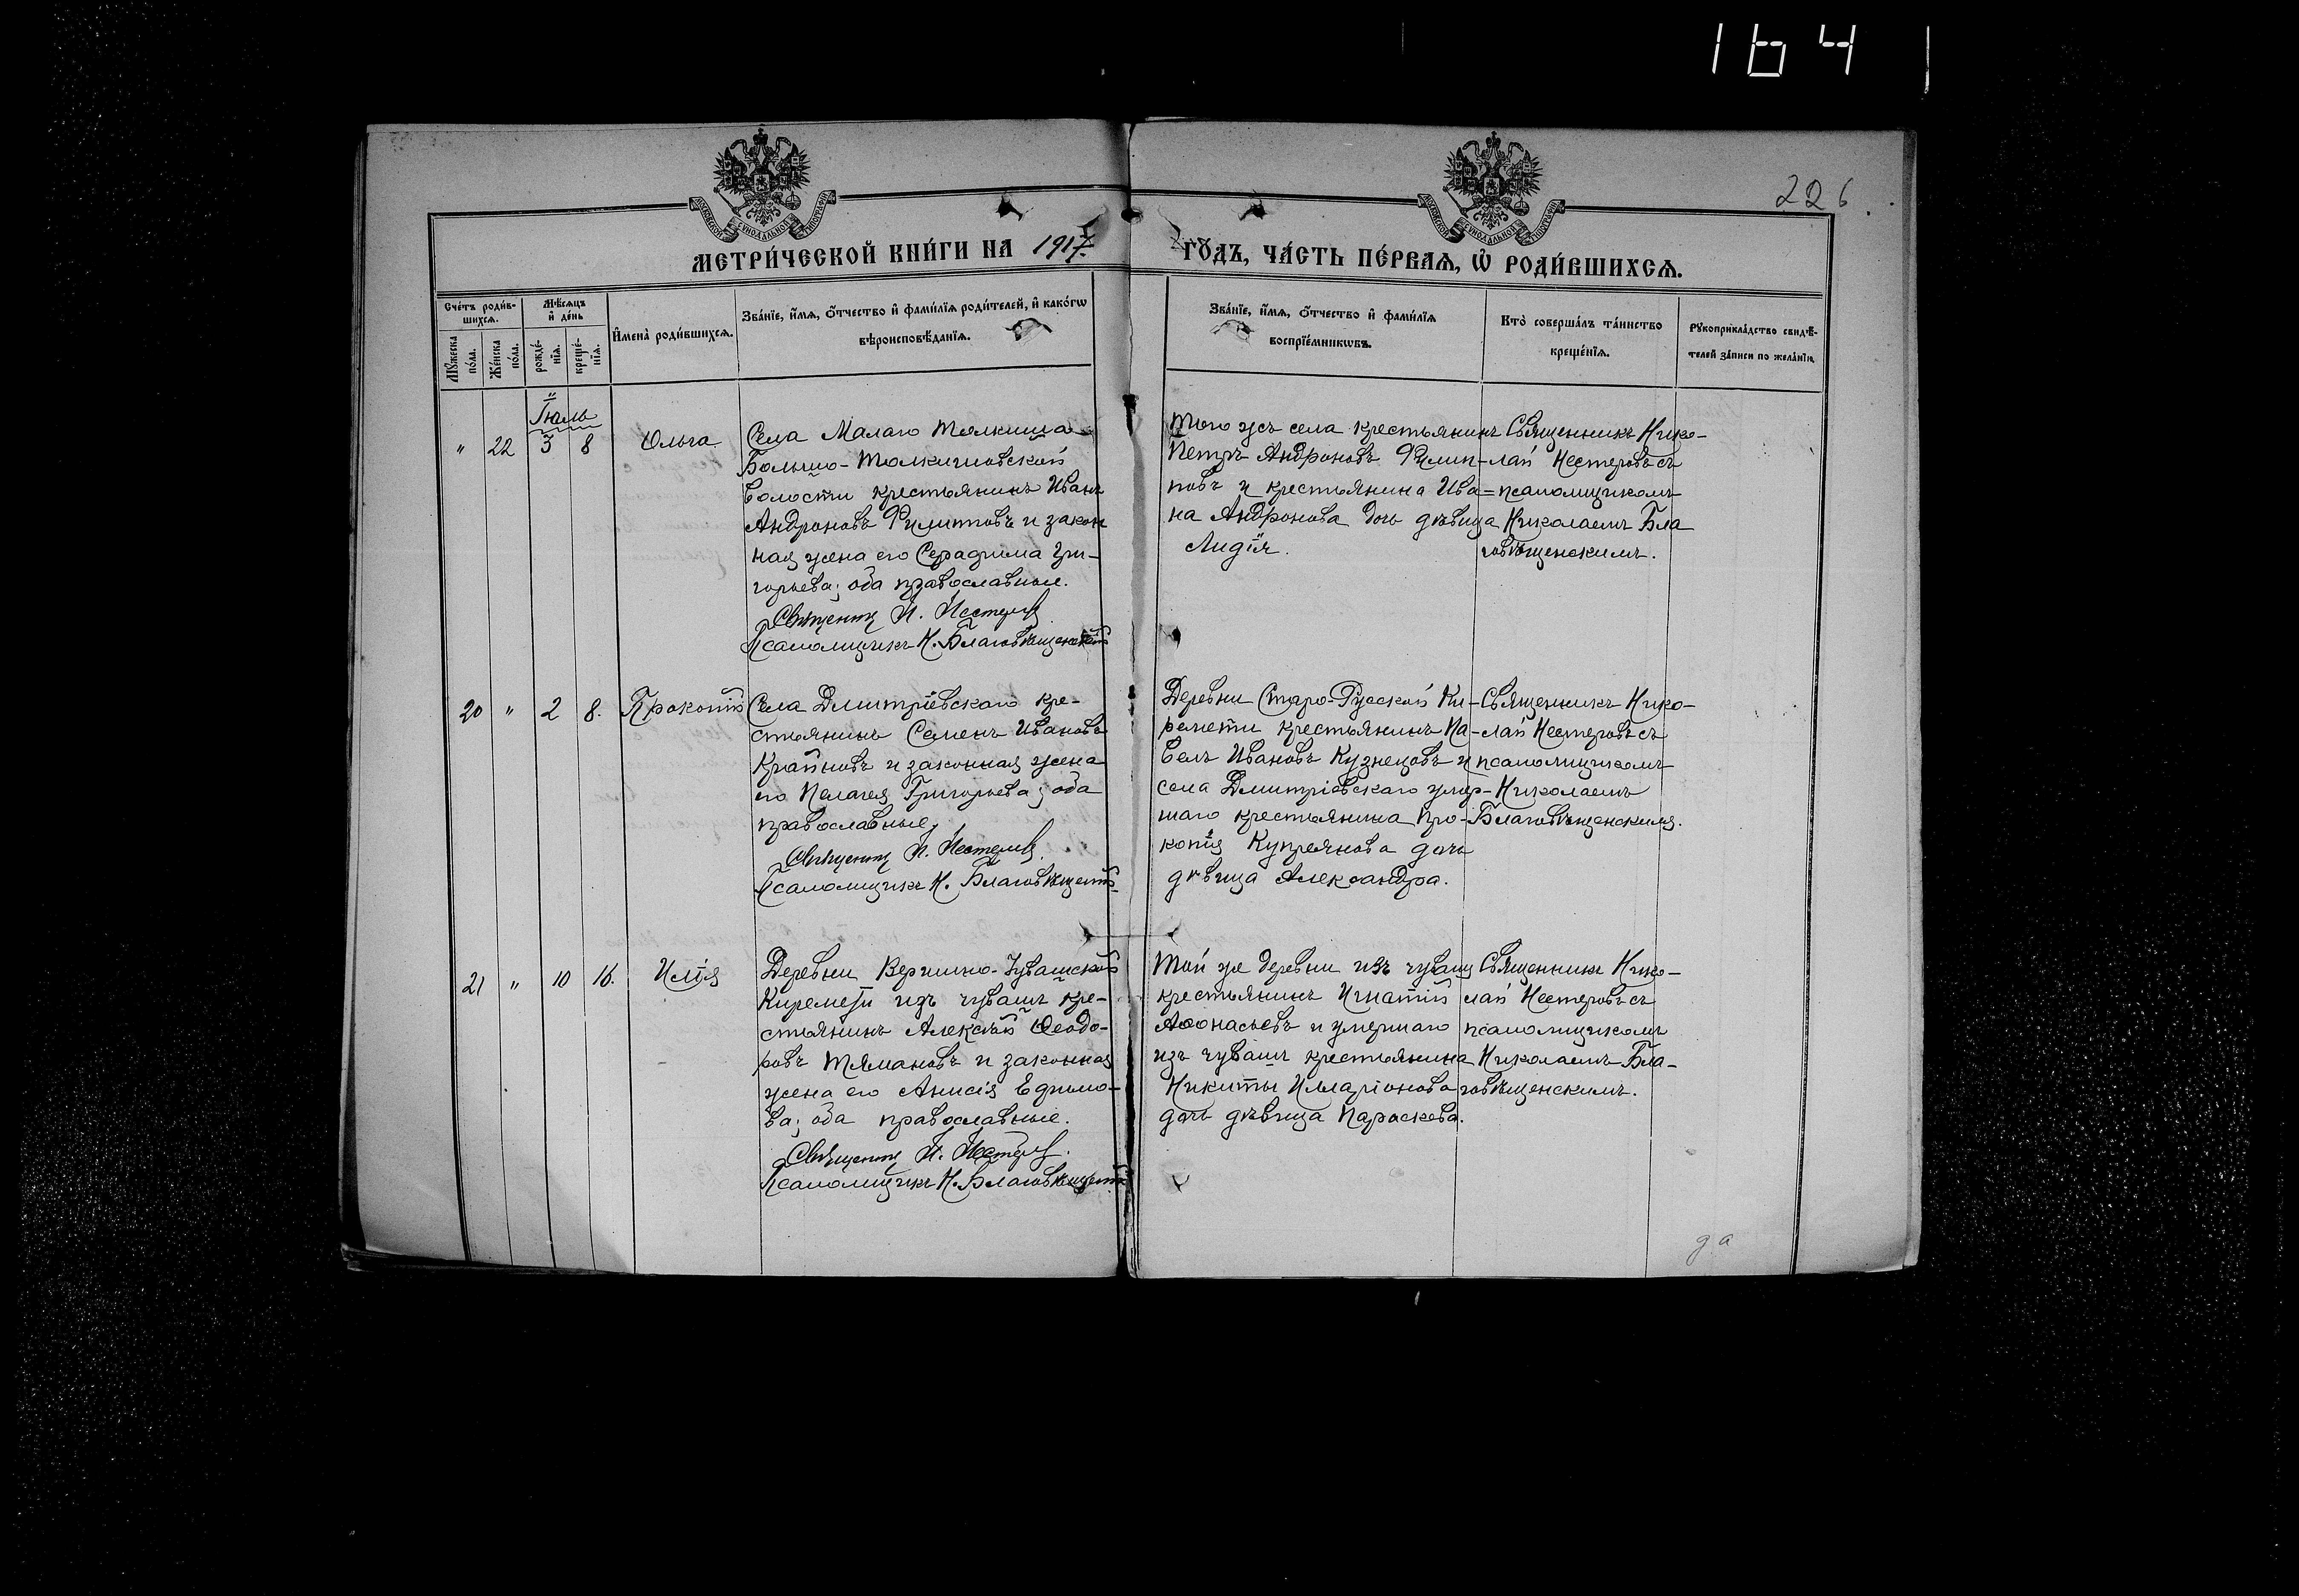 164
226.
МЕТРИ́ЧЕСКОЙ КНИ́ГИ НА 1917 ГО́ДЪ, ЧА́СТЬ ПЕ́РВАЯ, Ѡ РОДИ́ВШИХСЯ.
Сче́тъ роди́в-
шихся.
Мꙋ́жеска
по́ла.
Же́нска
по́ла.
Мѣ́сяцъ
и҆ де́нь
рожде́-
нїя.
креще́-
нїя.
И҆мена̀ роди́вшихся.
Зва́нїе, и҆́мя, ѻ҆́тчество и҆ фами́лїя роди́телей, и҆ како́гѡ
вѣроисповѣ́данїя.
Зва́нїе, и҆́мя, ѻ҆́тчество и҆ фами́лїя
воспрїе́мникѡвъ.
Кто̀ соверша́лъ та́инство
креще́нїя.
Рꙋкоприкла́дство свидѣ́-
телей за́писи по жела́нїю.
Іюль
" 22 3 8 Ольга
Села Малаго Толкиша
Больше-Толкишовской
волости крестьянинъ Иванъ
Андроновъ Филиповъ и закон
ная жена его Серафима Гри-
горьева; оба православные.
Священникъ Н. Нестеровъ
Псаломщикъ Н. Благовѣщенскій
Того же села крестьянинъ
Петръ Андроновъ Филип-
повъ и крестьянина Ива=
на Андронова дочь дѣвица
Лидія.
Священникъ Нико-
лай Нестеровъ съ
псаломщикомъ
Николаемъ Бла
говѣщенскимъ.
20 " 2 8. Прокопій
Села Дмитріевскаго кре-
стьянинъ Семенъ Ивановъ
Крайновъ и законная жена
его Пелагея Григорьева; оба
православные,
Священникъ Н. Нестеровъ
Псаломщикъ Н. Благовѣщенскій
Деревни Старо-Русской Ки-
ремети крестьянинъ Па-
велъ Ивановъ Кузнецовъ и
села Дмитріевскаго умер-
шаго крестьянина Про-
копія Купреянова дочь
дѣвица Александра.
Священникъ Нико-
лай Нестеровъ съ
псаломщикомъ
Николаемъ
Благовѣщенскимъ.
21 " 10 16. Илія
Деревни Вершино-Чувашской
Киремети изъ чувашъ кре-
стьянинъ Алексѣй Ѳеодо-
ровъ Тямановъ и законная
жена его Анисія Ефимо-
ва; оба православные.
Священникъ Н. Нестеровъ.
Псаломщикъ Н. Благовѣщенскій
Той же деревни изъ чувашъ
крестьянинъ Игнатій
Аѳонасьевъ и умершаго
изъ чувашъ крестьянина
Никиты Илларіонова
дочь дѣвица Параскева.
Священникъ Нико-
лай Нестеровъ съ
псаломщикомъ
Николаемъ Бла-
говѣщенскимъ.
да